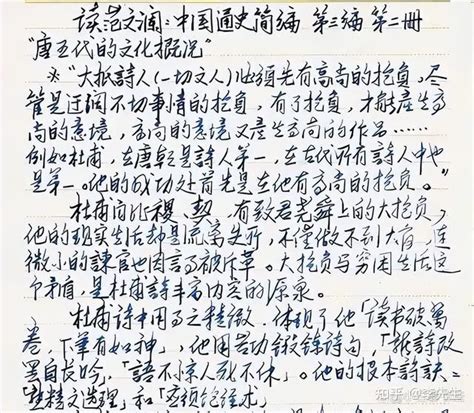 读范文澜:中国通史简编 第三编 第二册
"唐五代的文化概况"
※"大抵詩人(一切文人)必须先有高尚的抱負,尽
管是迂阔不切事情的抱負,有了抱負,才能產生高
尚的意境,高尚的意境又產生高尚的作品……
例如杜甫,在唐朝是詩人第一,在古代所有詩人中也
是第一。他的成功处首先是在他有高尚的抱負。"
杜甫自比稷、契,有致君尧舜上的大抱負,
他的现实生活却是流离失所,不僅做不到大官,连
微小的諫官也因言事被斥革。大抱負与穷困生活这
个矛盾,是杜甫詩丰富内容的源泉。
杜甫诗中用事之精微,体现了他「读书破萬
卷,下筆有如神」,他用苦功锻鍊詩句,「新詩改
罢自長吟」,「語不惊人死不休」。他的根本詩訣:
熟精文选理」和「
知乎 @李先生